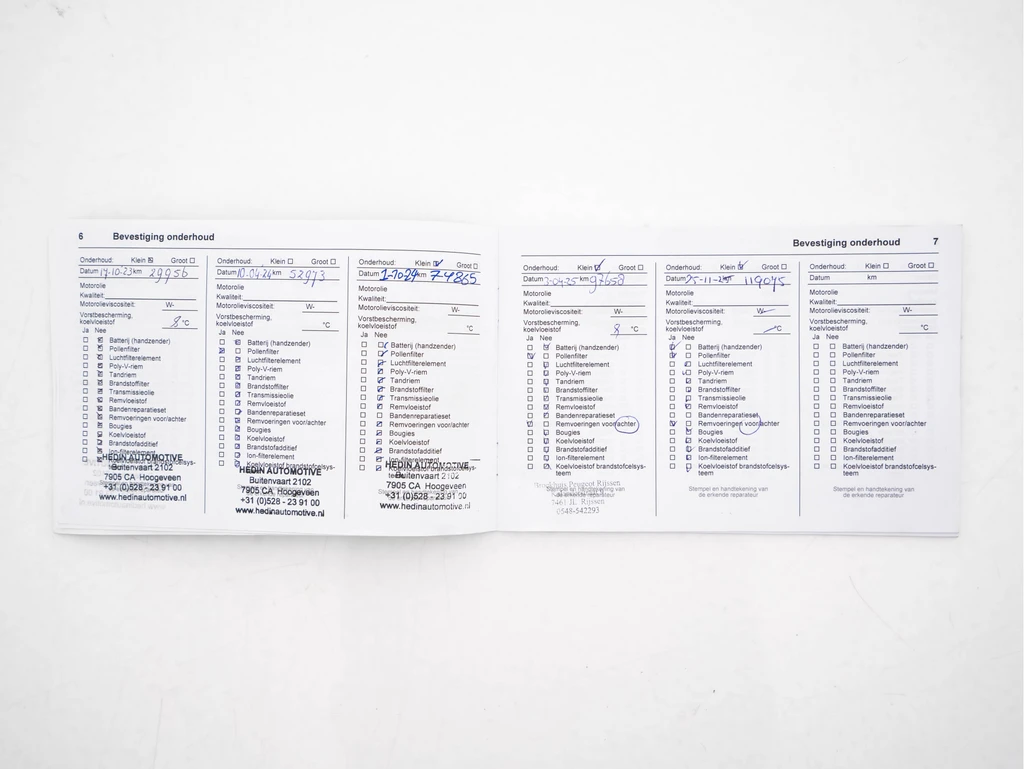 6 Bevestiging onderhoud
Onderhoud: Klein Groot
Datum 17-10-23 km 29956
Motorolie
Kwaliteit:
Motorolieviscositeit: W-
Vorstbescherming,
koelvloeistof 8 °C
Ja Nee
Batterij (handzender)
Pollenfilter
Luchtfilterelement
Poly-V-riem
Tandriem
Brandstoffilter
Transmissieolie
Remvloeistof
Bandenreparatieset
Remvoeringen voor/achter
Bougies
Koelvloeistof
Brandstofadditief
Ion-filterelement
HEDIN AUTOMOTIVE
Buitenvaart 2102
7905 CA Hoogeveen
+31 (0)528 - 23 91 00
www.hedinautomotive.nl
Onderhoud: Klein Groot
Datum 10.04.24 km 52973
Motorolie
Kwaliteit:
Motorolieviscositeit: W-
Vorstbescherming,
koelvloeistof °C
Ja Nee
Batterij (handzender)
Pollenfilter
Luchtfilterelement
Poly-V-riem
Tandriem
Brandstoffilter
Transmissieolie
Remvloeistof
Bandenreparatieset
Remvoeringen voor/achter
Bougies
Koelvloeistof
Brandstofadditief
Ion-filterelement
Koelvloeistof brandstofcelsys-
HEDIN AUTOMOTIVE
Buitenvaart 2102
7905 CA Hoogeveen
+31 (0)528 - 23 91 00
www.hedinautomotive.nl
Onderhoud: Klein Groot
Datum 1-10-24 km 74865
Motorolie
Kwaliteit:
Motorolieviscositeit: W-
Vorstbescherming,
koelvloeistof °C
Ja Nee
Batterij (handzender)
Pollenfilter
Luchtfilterelement
Poly-V-riem
Tandriem
Brandstoffilter
Transmissieolie
Remvloeistof
Bandenreparatieset
Remvoeringen voor/achter
Bougies
Koelvloeistof
Brandstofadditief
Ion-filterelement
Koelvloeistof brandstofcelsys-
HEDIN AUTOMOTIVE
Buitenvaart 2102
7905 CA Hoogeveen
+31 (0)528 - 23 91 00
www.hedinautomotive.nl
Bevestiging onderhoud 7
Onderhoud: Klein Groot
Datum 3-04-25 km 97658
Motorolie
Kwaliteit:
Motorolieviscositeit: W-
Vorstbescherming,
koelvloeistof 8 °C
Ja Nee
Batterij (handzender)
Pollenfilter
Luchtfilterelement
Poly-V-riem
Tandriem
Brandstoffilter
Transmissieolie
Remvloeistof
Bandenreparatieset
Remvoeringen voor/achter
Bougies
Koelvloeistof
Brandstofadditief
Ion-filterelement
Koelvloeistof brandstofcelsys-
teem
Peugeot Rijssen
Stempel en handtekening van
de erkende reparateur
7461 JL Rijssen
0548-542293
Onderhoud: Klein Groot
Datum 25-11-25 119075
Motorolie
Kwaliteit:
Motorolieviscositeit: W-
Vorstbescherming,
koelvloeistof °C
Ja Nee
Batterij (handzender)
Pollenfilter
Luchtfilterelement
Poly-V-riem
Tandriem
Brandstoffilter
Transmissieolie
Remvloeistof
Bandenreparatieset
Remvoeringen voor/achter
Bougies
Koelvloeistof
Brandstofadditief
Ion-filterelement
Koelvloeistof brandstofcelsys-
teem
Stempel en handtekening van
de erkende reparateur
Onderhoud: Klein Groot
Datum km
Motorolie
Kwaliteit:
Motorolieviscositeit: W-
Vorstbescherming,
koelvloeistof °C
Ja Nee
Batterij (handzender)
Pollenfilter
Luchtfilterelement
Poly-V-riem
Tandriem
Brandstoffilter
Transmissieolie
Remvloeistof
Bandenreparatieset
Remvoeringen voor/achter
Bougies
Koelvloeistof
Brandstofadditief
Ion-filterelement
Koelvloeistof brandstofcelsys-
teem
Stempel en handtekening van
de erkende reparateur